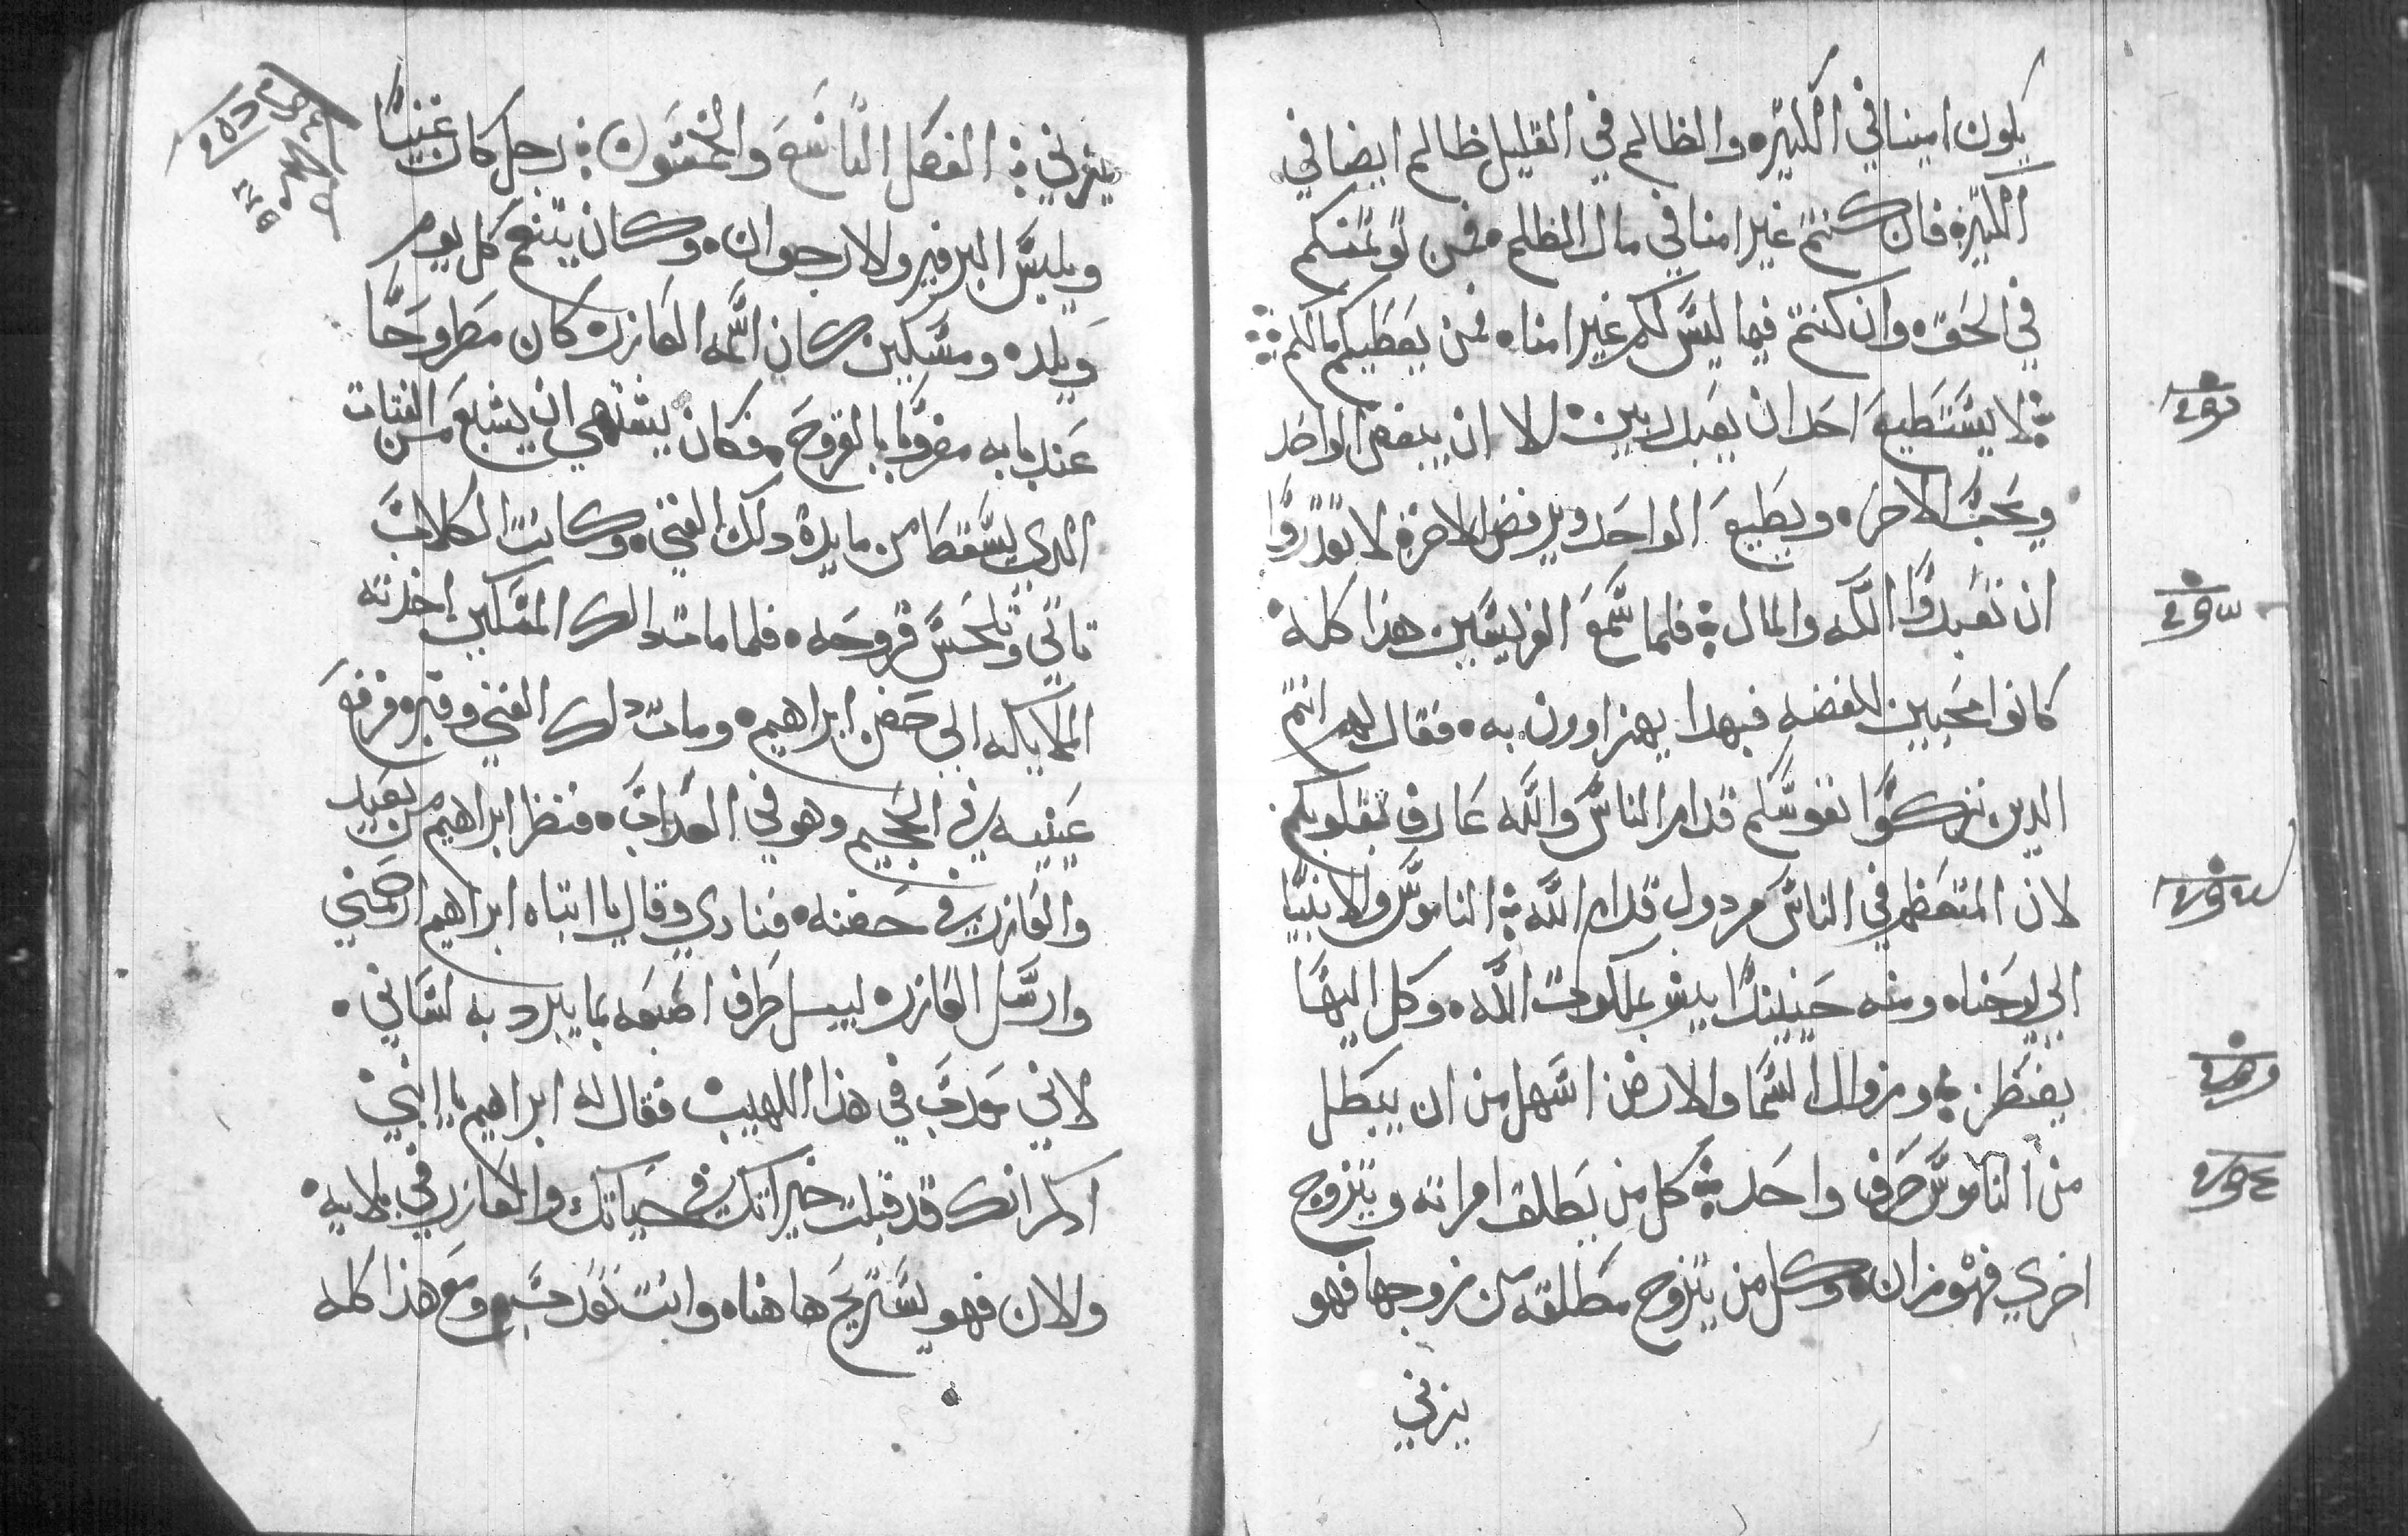 يكون امينا في الكثيره والظالم في القليل ظالم ايضا في
الكثيره فان كنتم غير امنا في مال الظلم فمن يوتمنكم
في الحق وان كنتم فيما ليس لكم غير امناه فمن يعطيكم مالكم
لا يستطيع احد ان يعبد ربين الا ان يبغض الواحد
ويحب الاخر ويطيع الواحد ويرفض الاخر لا تقدروا
ان تعبدوا الله والمال فلما سمع الفريسيين هذا كله
كانوا محبين للفضه فبهدا يهزاوون به فقال لهم انتم
الدين تزكوا نفوسكم قدام الناس والله عارف بقلوبكم
لان المتعظم في الناس مردول قدام الله الناموس والانبيا
الي يوحناه ومنه حينيدا يبشر بملكوت الله وكل اليها
يغتطر وزوال السما والارض اسهل من ان يبطل
من الناموس حرف واحد كل من يطلق امراته ويتزوج
اخري فهو زان وكل من يتزوج مطلقه من زوجها فهو
يزني
يزني الفصل التاسع والخمسون رجل كان غنيا
ويلبس البرفير والارجوان وكان يتنعم كل يوم
ويلده ومسكين كان اسمه العازر كان مطروحا
عند بابه مضروبا بالقروح فكان يشتهي ان يشبع من الفتات
الدي يسقط من مايدة دلك الغني وكانت الكلاب
تاتي وتلحس قروحه فلما مات دالك المسكين اخدته
الملايكه الي حضن ابراهيم ومات دلك الغني وقبر فرفع
عينيه في الجحيم وهو في العداب فنظر ابراهيم من بعيد
والعازر في حضنه فنادي وقال يا ابتاه ابراهيم ارحمني
وارسل العازر ليبل طرف اصبعه بما يبرد به لساني
لاني معدب في هذا اللهيب فقال له ابراهيم يا ابني
ادكر انك قد قبلت خيراتك في حياتك والعازر في بلاييه
والان فهو يستريح هاهناه وانت تعدب ومع هذا كله